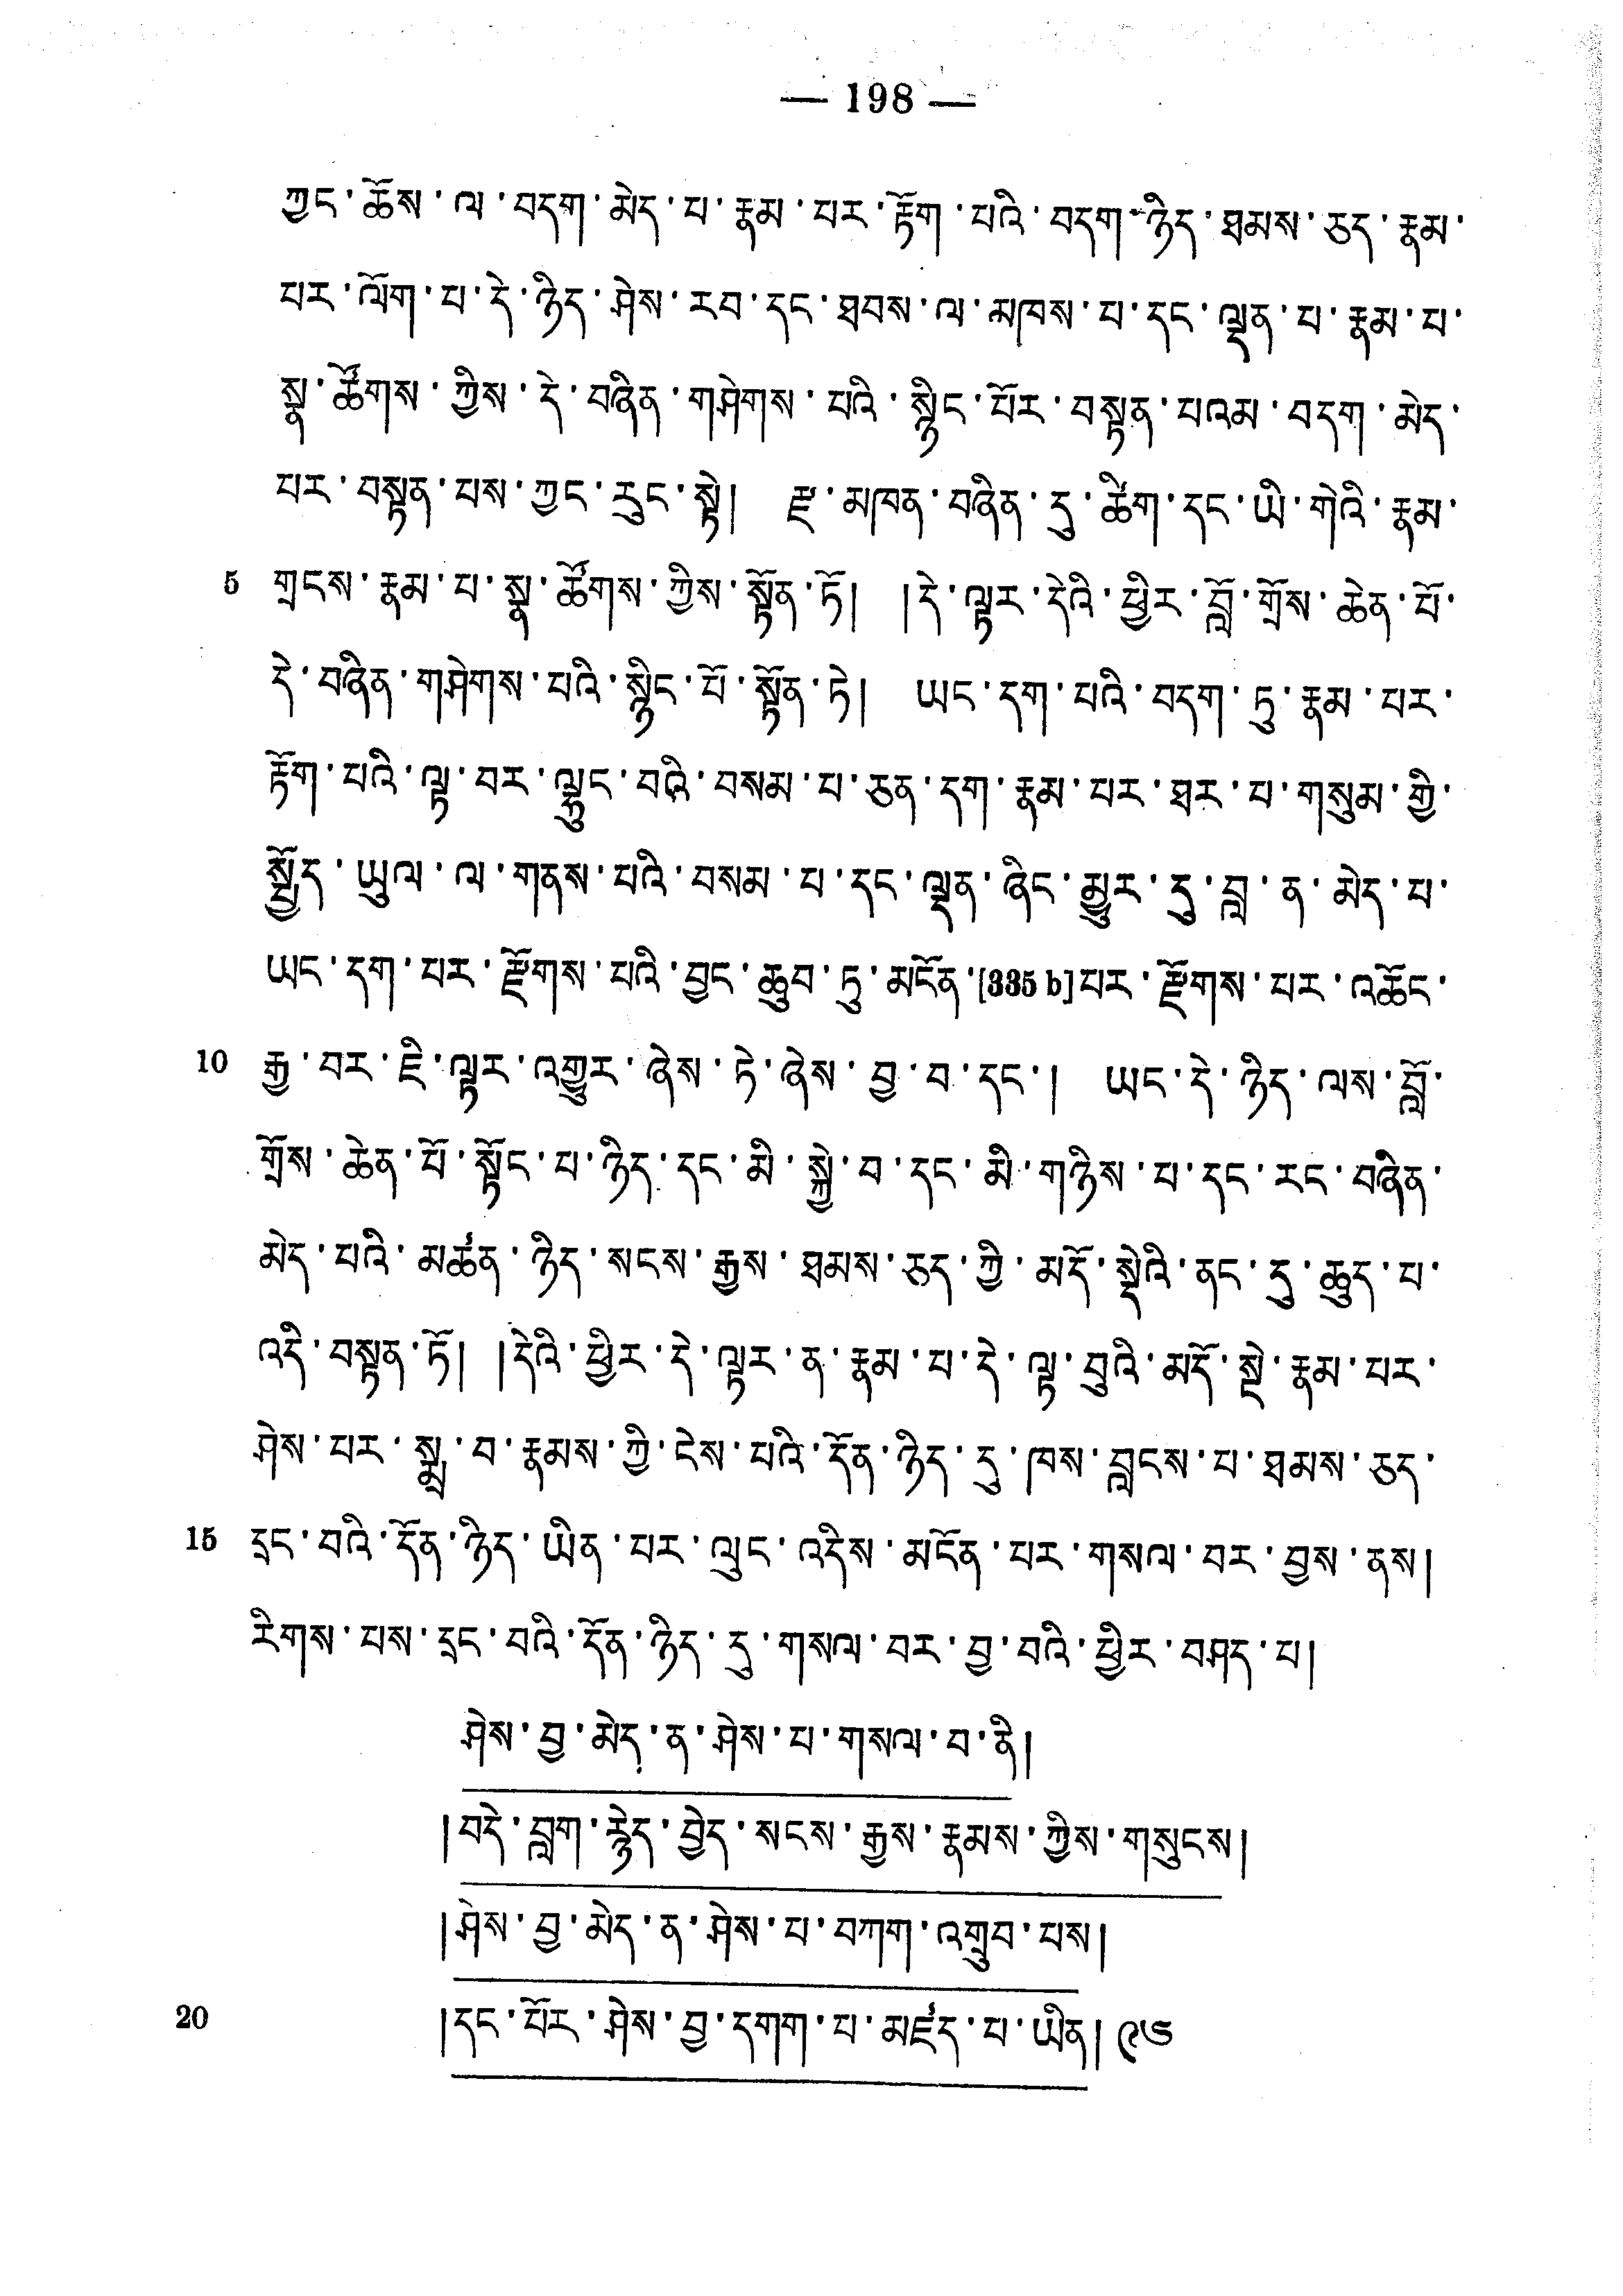 — 198 —
ཀྱང་ཆོས་ལ་བདག་མེད་པ་རྣམ་པར་རྟོག་པའི་བདག་ཉིད་ཐམས་ཅད་རྣམ་
པར་ལོག་པ་དེ་ཉིད་ཤེས་རབ་དང་ཐབས་ལ་མཁས་པ་དང་ལྡན་པ་རྣམ་པ་
སྣ་ཚོགས་ཀྱིས་དེ་བཞིན་གཤེགས་པའི་སྙིང་པོར་བསྟན་པའམ་བདག་མེད་
པར་བསྟན་པས་ཀྱང་རུང་སྟེ། རྫ་མཁན་བཞིན་དུ་ཚིག་དང་ཡི་གེའི་རྣམ་
5 གྲངས་རྣམ་པ་སྣ་ཚོགས་ཀྱིས་སྟོན་ཏོ། །དེ་ལྟར་དེའི་ཕྱིར་བློ་གྲོས་ཆེན་པོ་
དེ་བཞིན་གཤེགས་པའི་སྙིང་པོ་སྟོན་ཏེ། ཡང་དག་པའི་བདག་ཏུ་རྣམ་པར་
རྟོག་པའི་ལྟ་བར་ལྷུང་བའི་བསམ་པ་ཅན་དག་རྣམ་པར་ཐར་པ་གསུམ་གྱི་
སྤྱོད་ཡུལ་ལ་གནས་པའི་བསམ་པ་དང་ལྡན་ཞིང་མྱུར་དུ་བླ་ན་མེད་པ་
ཡང་དག་པར་རྫོགས་པའི་བྱང་ཆུབ་ཏུ་མངོན་[335 b]པར་རྫོགས་པར་འཚོང་
10 རྒྱ་བར་ཇི་ལྟར་འགྱུར་ཞེས་ཏེ་ཞེས་བྱ་བ་དང་། ཡང་དེ་ཉིད་ལས་བློ་
གྲོས་ཆེན་པོ་སྟོང་པ་ཉིད་དང་མི་སྐྱེ་བ་དང་མི་གཉིས་པ་དང་རང་བཞིན་
མེད་པའི་མཚན་ཉིད་སངས་རྒྱས་ཐམས་ཅད་ཀྱི་མདོ་སྡེའི་ནང་དུ་ཆུད་པ་
འདི་བསྟན་ཏོ། །དེའི་ཕྱིར་དེ་ལྟར་ན་རྣམ་པ་དེ་ལྟ་བུའི་མདོ་སྡེ་རྣམ་པར་
ཤེས་པར་སྨྲ་བ་རྣམས་ཀྱི་ངེས་པའི་དོན་ཉིད་དུ་ཁས་བླངས་པ་ཐམས་ཅད་
15 དྲང་བའི་དོན་ཉིད་ཡིན་པར་ལུང་འདིས་མངོན་པར་གསལ་བར་བྱས་ནས།
རིགས་པས་དྲང་བའི་དོན་ཉིད་དུ་གསལ་བར་བྱ་བའི་ཕྱིར་བཤད་པ།
ཤེས་བྱ་མེད་ན་ཤེས་པ་གསལ་བ་ནི།
།བདེ་བླག་རྙེད་བྱེད་སངས་རྒྱས་རྣམས་ཀྱིས་གསུངས།
།ཤེས་བྱ་མེད་ན་ཤེས་པ་བཀག་འགྲུབ་པས།
20 །དང་པོར་ཤེས་བྱ་དགག་པ་མཛད་པ་ཡིན། ༩༦